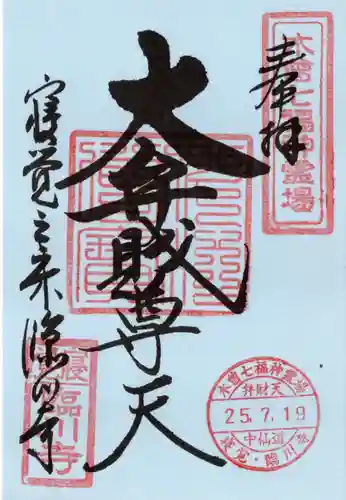 奉拝
木曽七福神霊場
大弁財尊天
寝覚之床臨川寺
臨川寺
木曽七福神霊場
弁財天
25.7.19
中仙道
寝覚・臨川寺